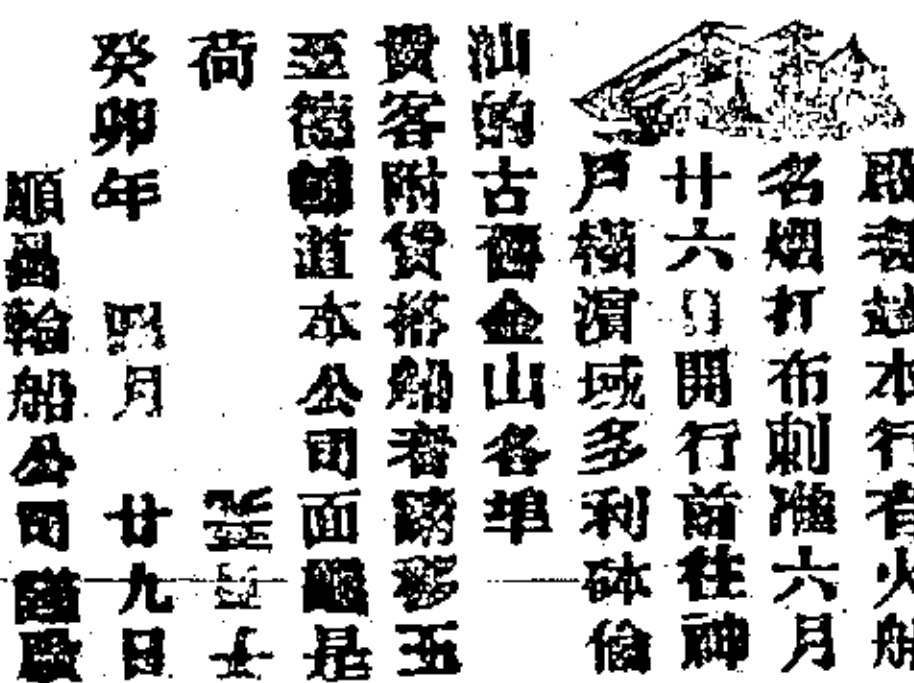 啟者本行有火船
名烟打布剌準六月
廿六日開行前往神
戶橫濱域多利砵倫
汕的古舊金山各埠
貴客附貨搭船者請移玉
至德輔道本公司面議是
荷
癸卯年 月 廿九日
順昌輪船公司謹啟